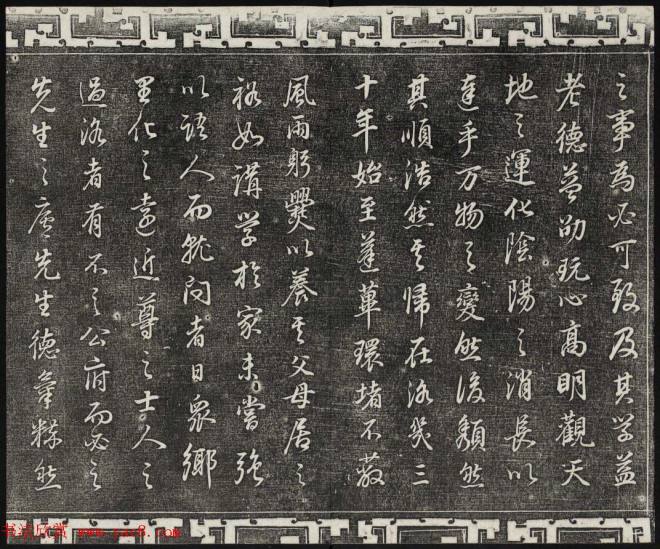 之事为必可致及其学益
老德益劭玩心高明觀天
地之運化陰陽之消長以
達乎万物之變然後頹然
其順浩然其歸在洛幾三
十年始至蓬蓽環堵不蔽
風雨躬爨以養其父母居之
裕如講学於家未嘗强
以語人而就问者日衆鄉
里化之遠近尊之士人之
過洛者有不之公府而必之
先生之廬先生德氣粹然
书法欣赏 www.yac8.com